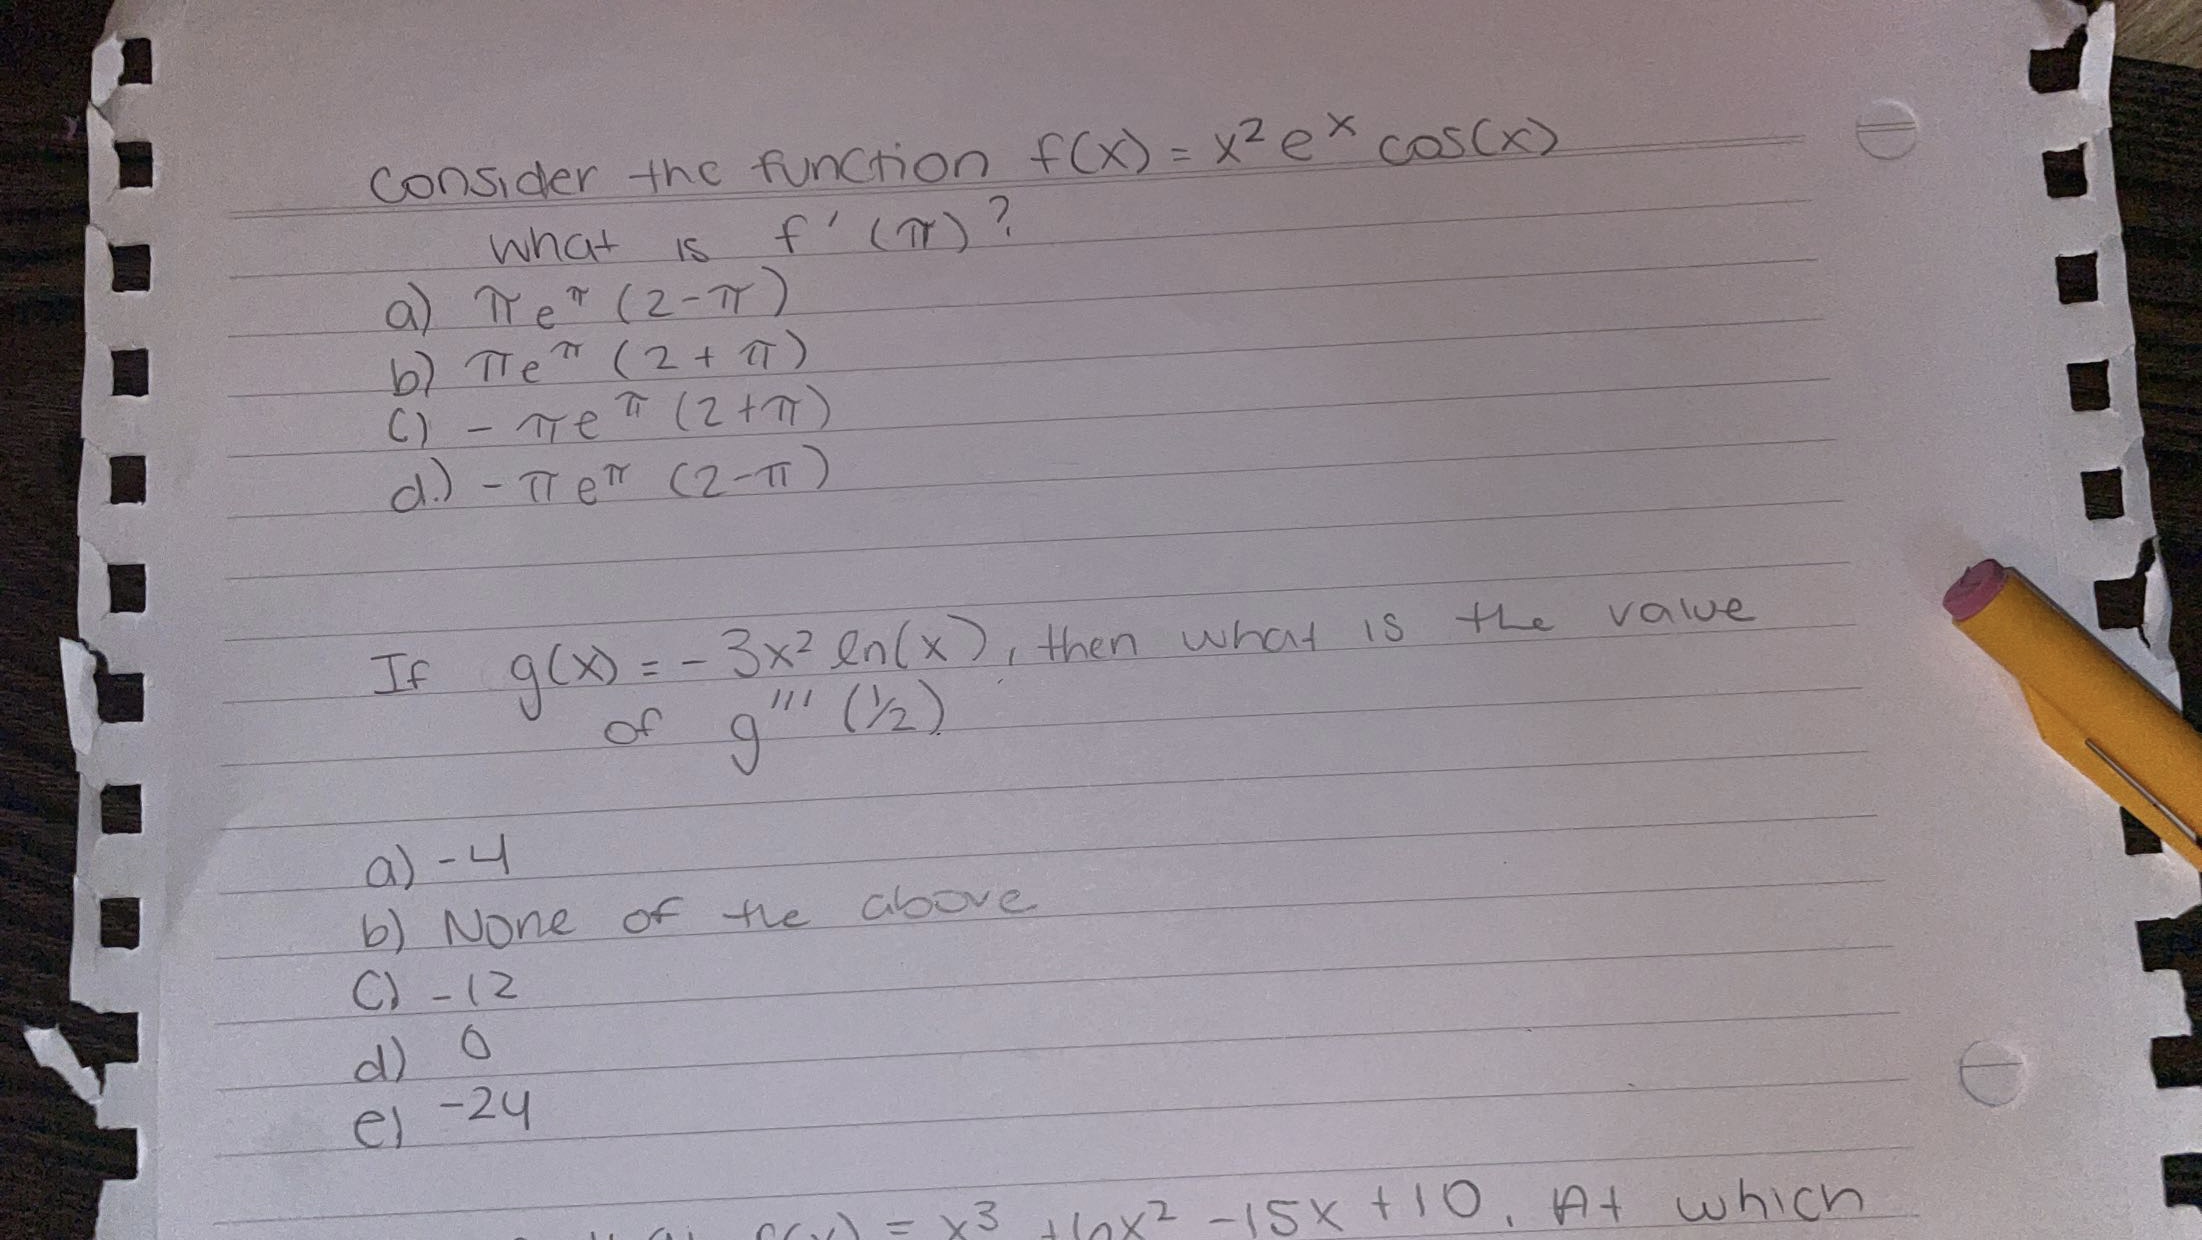 Consider the function f(x) = x² eˣ cos(x)
What is f'(π)?
a) π e^π (2-π)
b) π e^π (2+π)
c) - π e^π (2+π)
d.) - π e^π (2-π)
If g(x) = -3x² ln(x), then what is the value
of g'''(1/2).
a) -4
b) None of the above
c) -12
d) 0
e) -24
= x³ +6x² -15x +10. At which